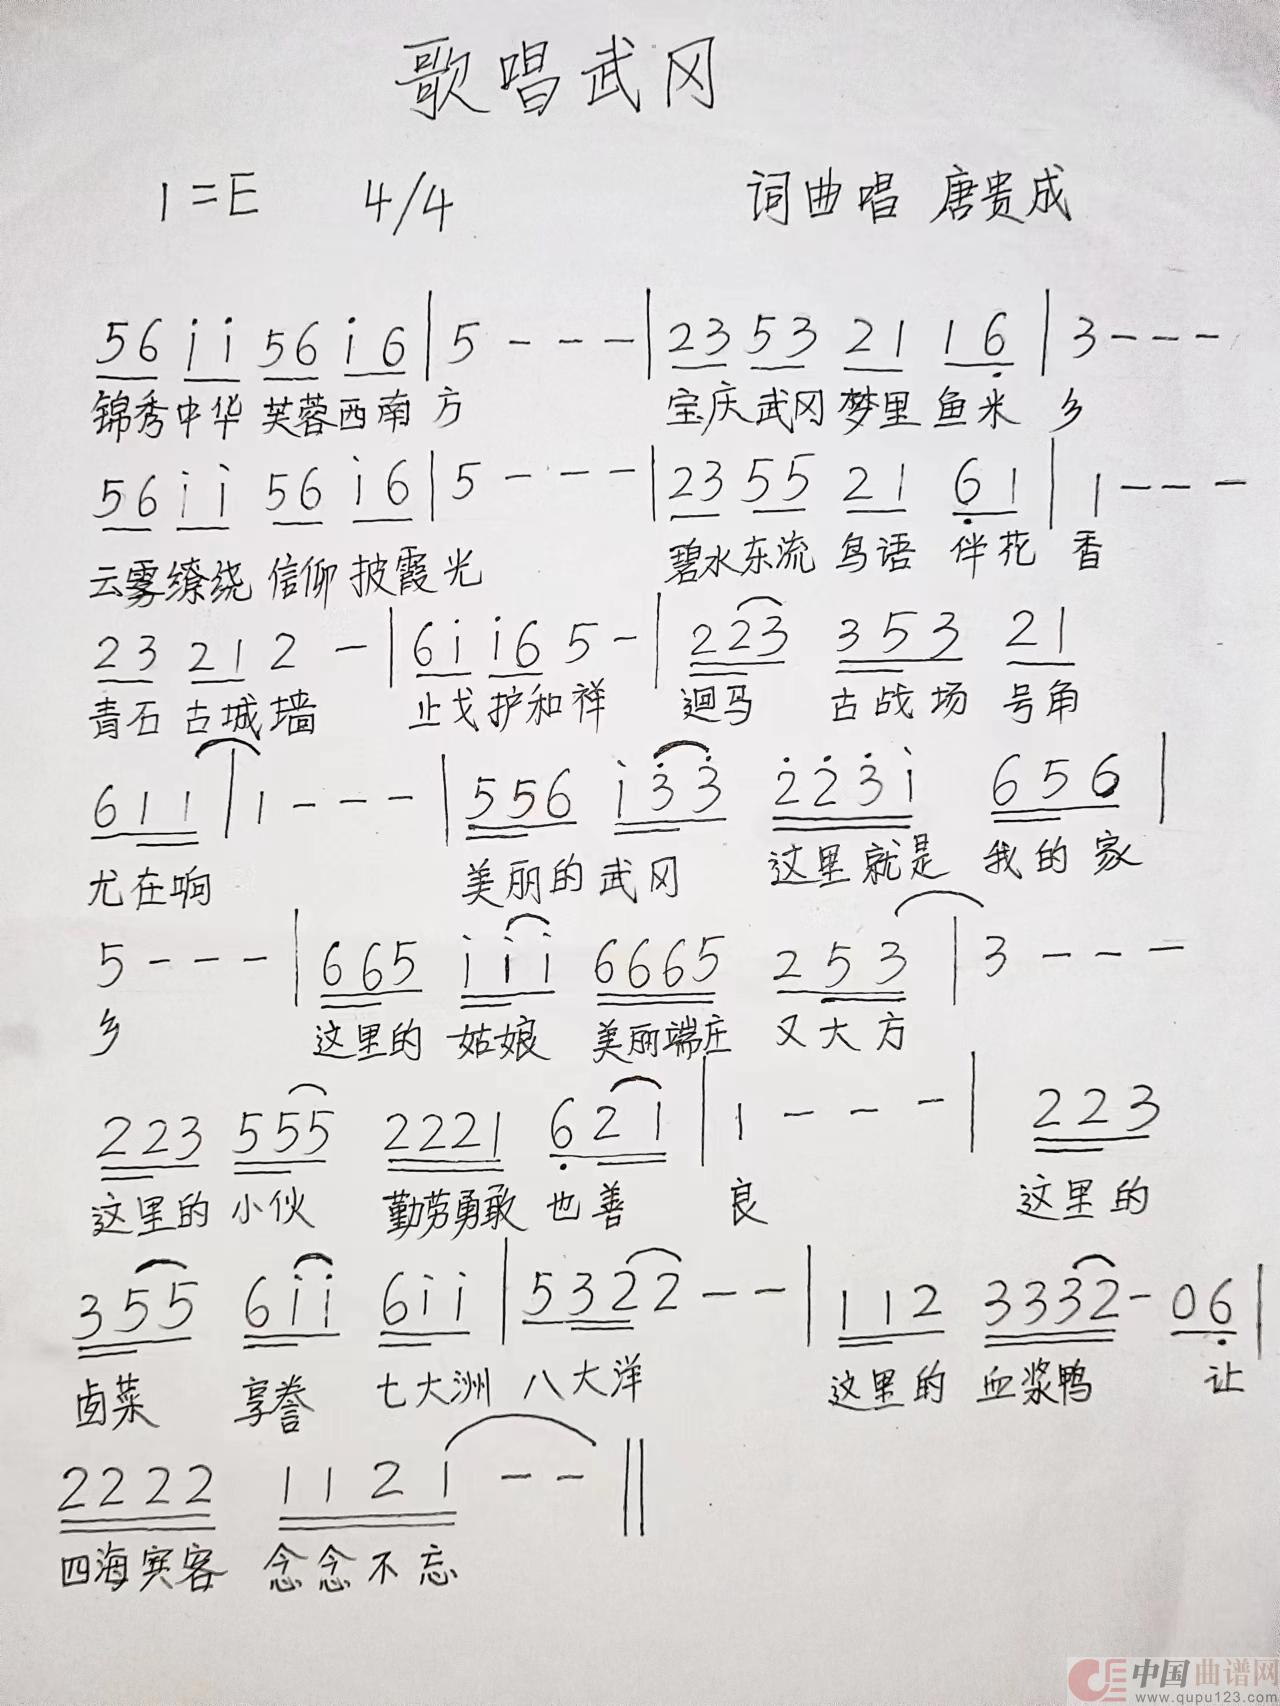 歌唱武冈
1=E 4/4 词曲唱 唐贵成
56 i̇i̇ 56 i̇6 | 5 - - - | 23 53 21 16̣ | 3 - - -
锦秀中华 芙蓉西南 方 宝庆武冈 梦里 鱼米 乡
56 i̇i̇ 56 i̇6 | 5 - - - | 23 55 21 6̣1 | 1 - - -
云雾缭绕 信仰 披霞光 碧水东流 鸟语 伴花 香
23 21 2 - | 6i̇ i̇6 5 - | 223 353 21
青石 古城墙 止戈护和祥 迴马 古战场 号角
611 | 1 - - - | 556 i̇3̇3̇ 2̇2̇3̇i̇ 656 |
尤在响 美丽的 武冈 这里就是 我的家
5 - - - | 665 i̇i̇i̇ 6665 253 | 3 - - -
乡 这里的 姑娘 美丽端庄 又大方
223 555 2221 6̣21 | 1 - - - | 223
这里的 小伙 勤劳勇敢 也善 良 这里的
355 6i̇i̇ 6i̇i̇ | 5322 - - | 112 3332 - 06̣ |
卤菜 享誉 七大洲 八大洋 这里的 血浆鸭 让
2222 1121 - - ‖
四海宾客 念念不忘
中国曲谱网
www.qupu123.com